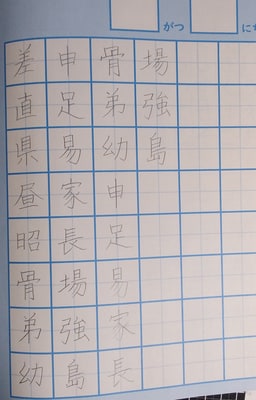 がつ にち
差 申 骨 場
直 足 弟 強
県 易 幼 島
昼 家 申
昭 長 足
骨 場 易
弟 強 家
幼 島 長